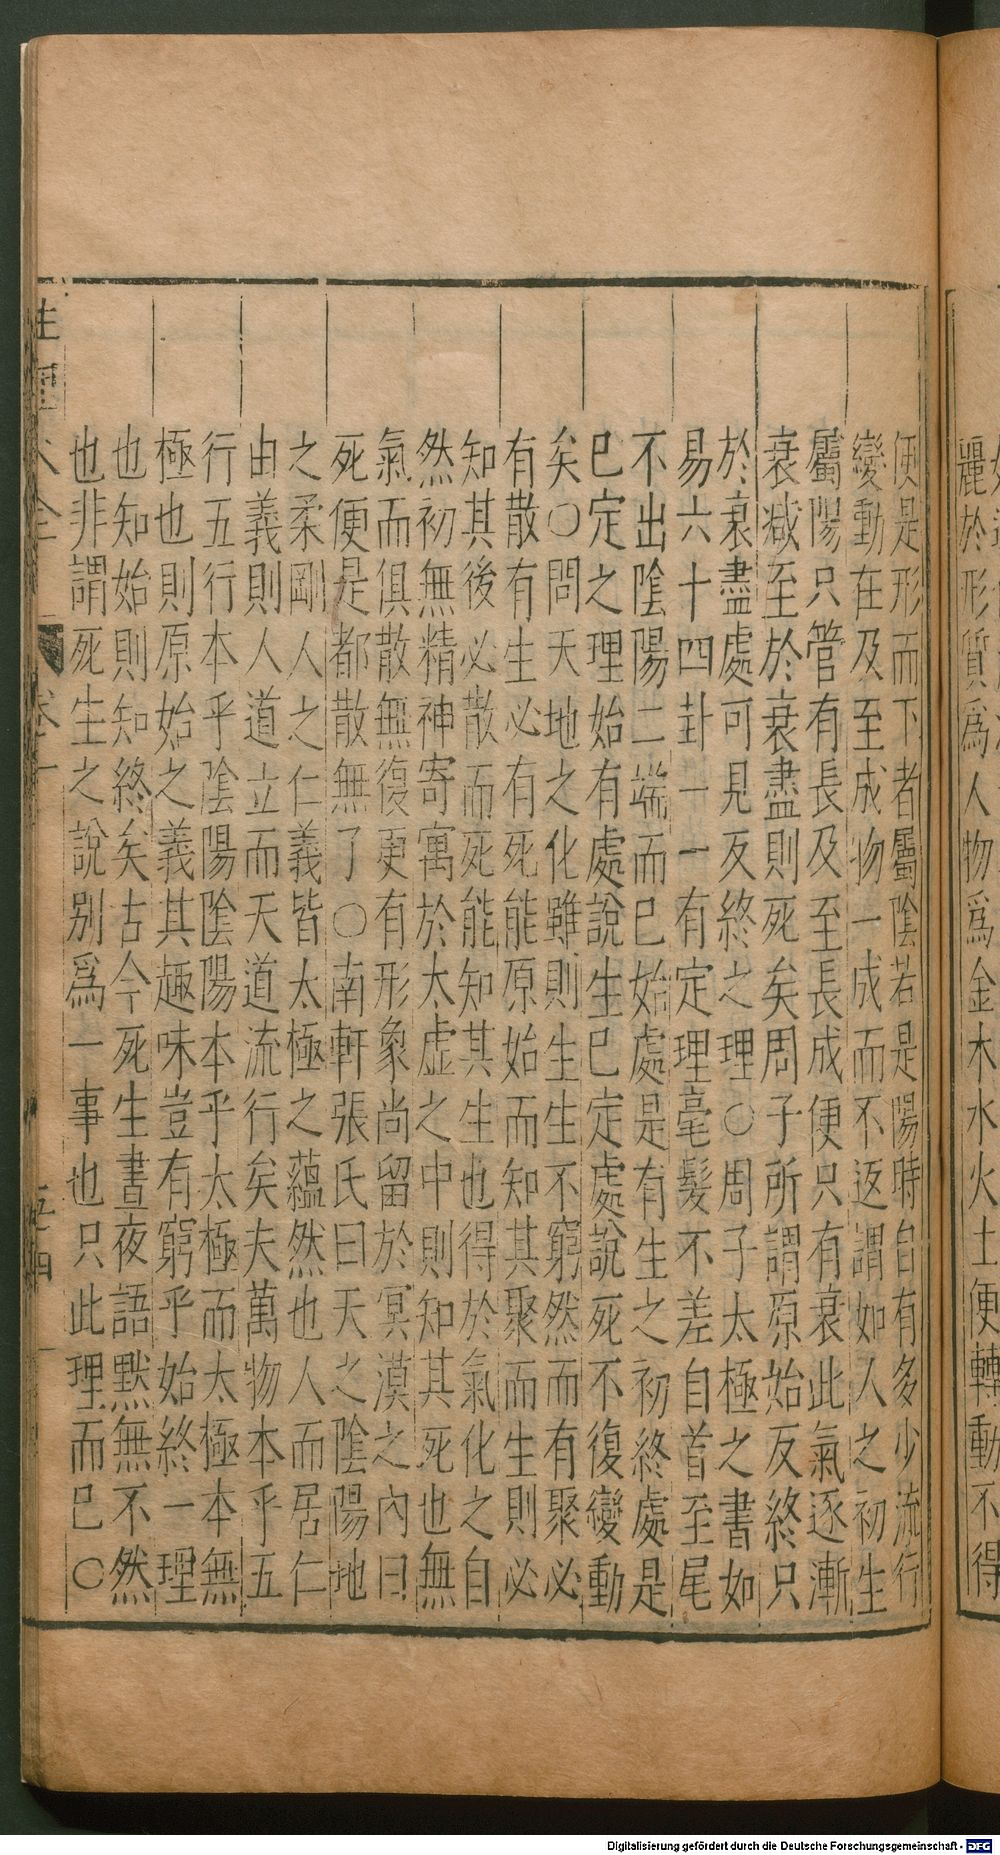 麗於形質爲人物爲金木水火土便轉動不得
便是形而下者屬陰若是陽時自有多少流行
變動在及至成物一成而不返謂如人之初生
屬陽只管有長及至長成便只有衰此氣逐漸
衰減至於衰盡則死矣周子所謂原始反終只
於衰盡處可見反終之理○周子太極之書如
易六十四卦一一有定理毫髮不差自首至尾
不出陰陽二端而已始處是有生之初終處是
已定之理始有處說生已定處說死不復變動
矣○問天地之化雖則生生不窮然而有聚必
有散有生必有死能原始而知其聚而生則必
知其後必散而死能知其生也得於氣化之自
然初無精神寄寓於太虛之中則知其死也無
氣而俱散無復更有形象尚留於冥漠之內曰
死便是都散無了○南軒張氏曰天之陰陽地
之柔剛人之仁義皆太極之蘊然也人而居仁
由義則人道立而天道流行矣夫萬物本乎五
行五行本乎陰陽陰陽本乎太極而太極本無
極也則原始之義其趣味豈有窮乎始終一理
也知始則知終矣古今死生晝夜語默無不然
也非謂死生之說別爲一事也只此理而已○
Digitalisierung gefördert durch die Deutsche Forschungsgemeinschaft - DFG